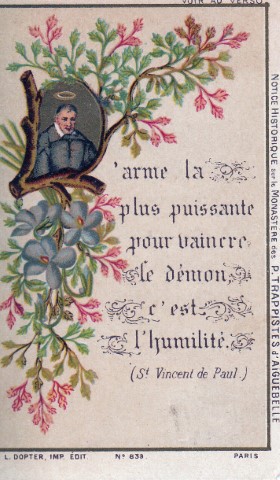 VOIR AU VERSO.
L'arme la
plus puissante
pour vaincre
le démon
c'est
l'humilité.
(St Vincent de Paul.)
NOTICE HISTORIQUE sur le MONASTÈRE des P. TRAPPISTES d'AIGUEBELLE
L. DOPTER, IMP. ÉDIT. No 839. PARIS